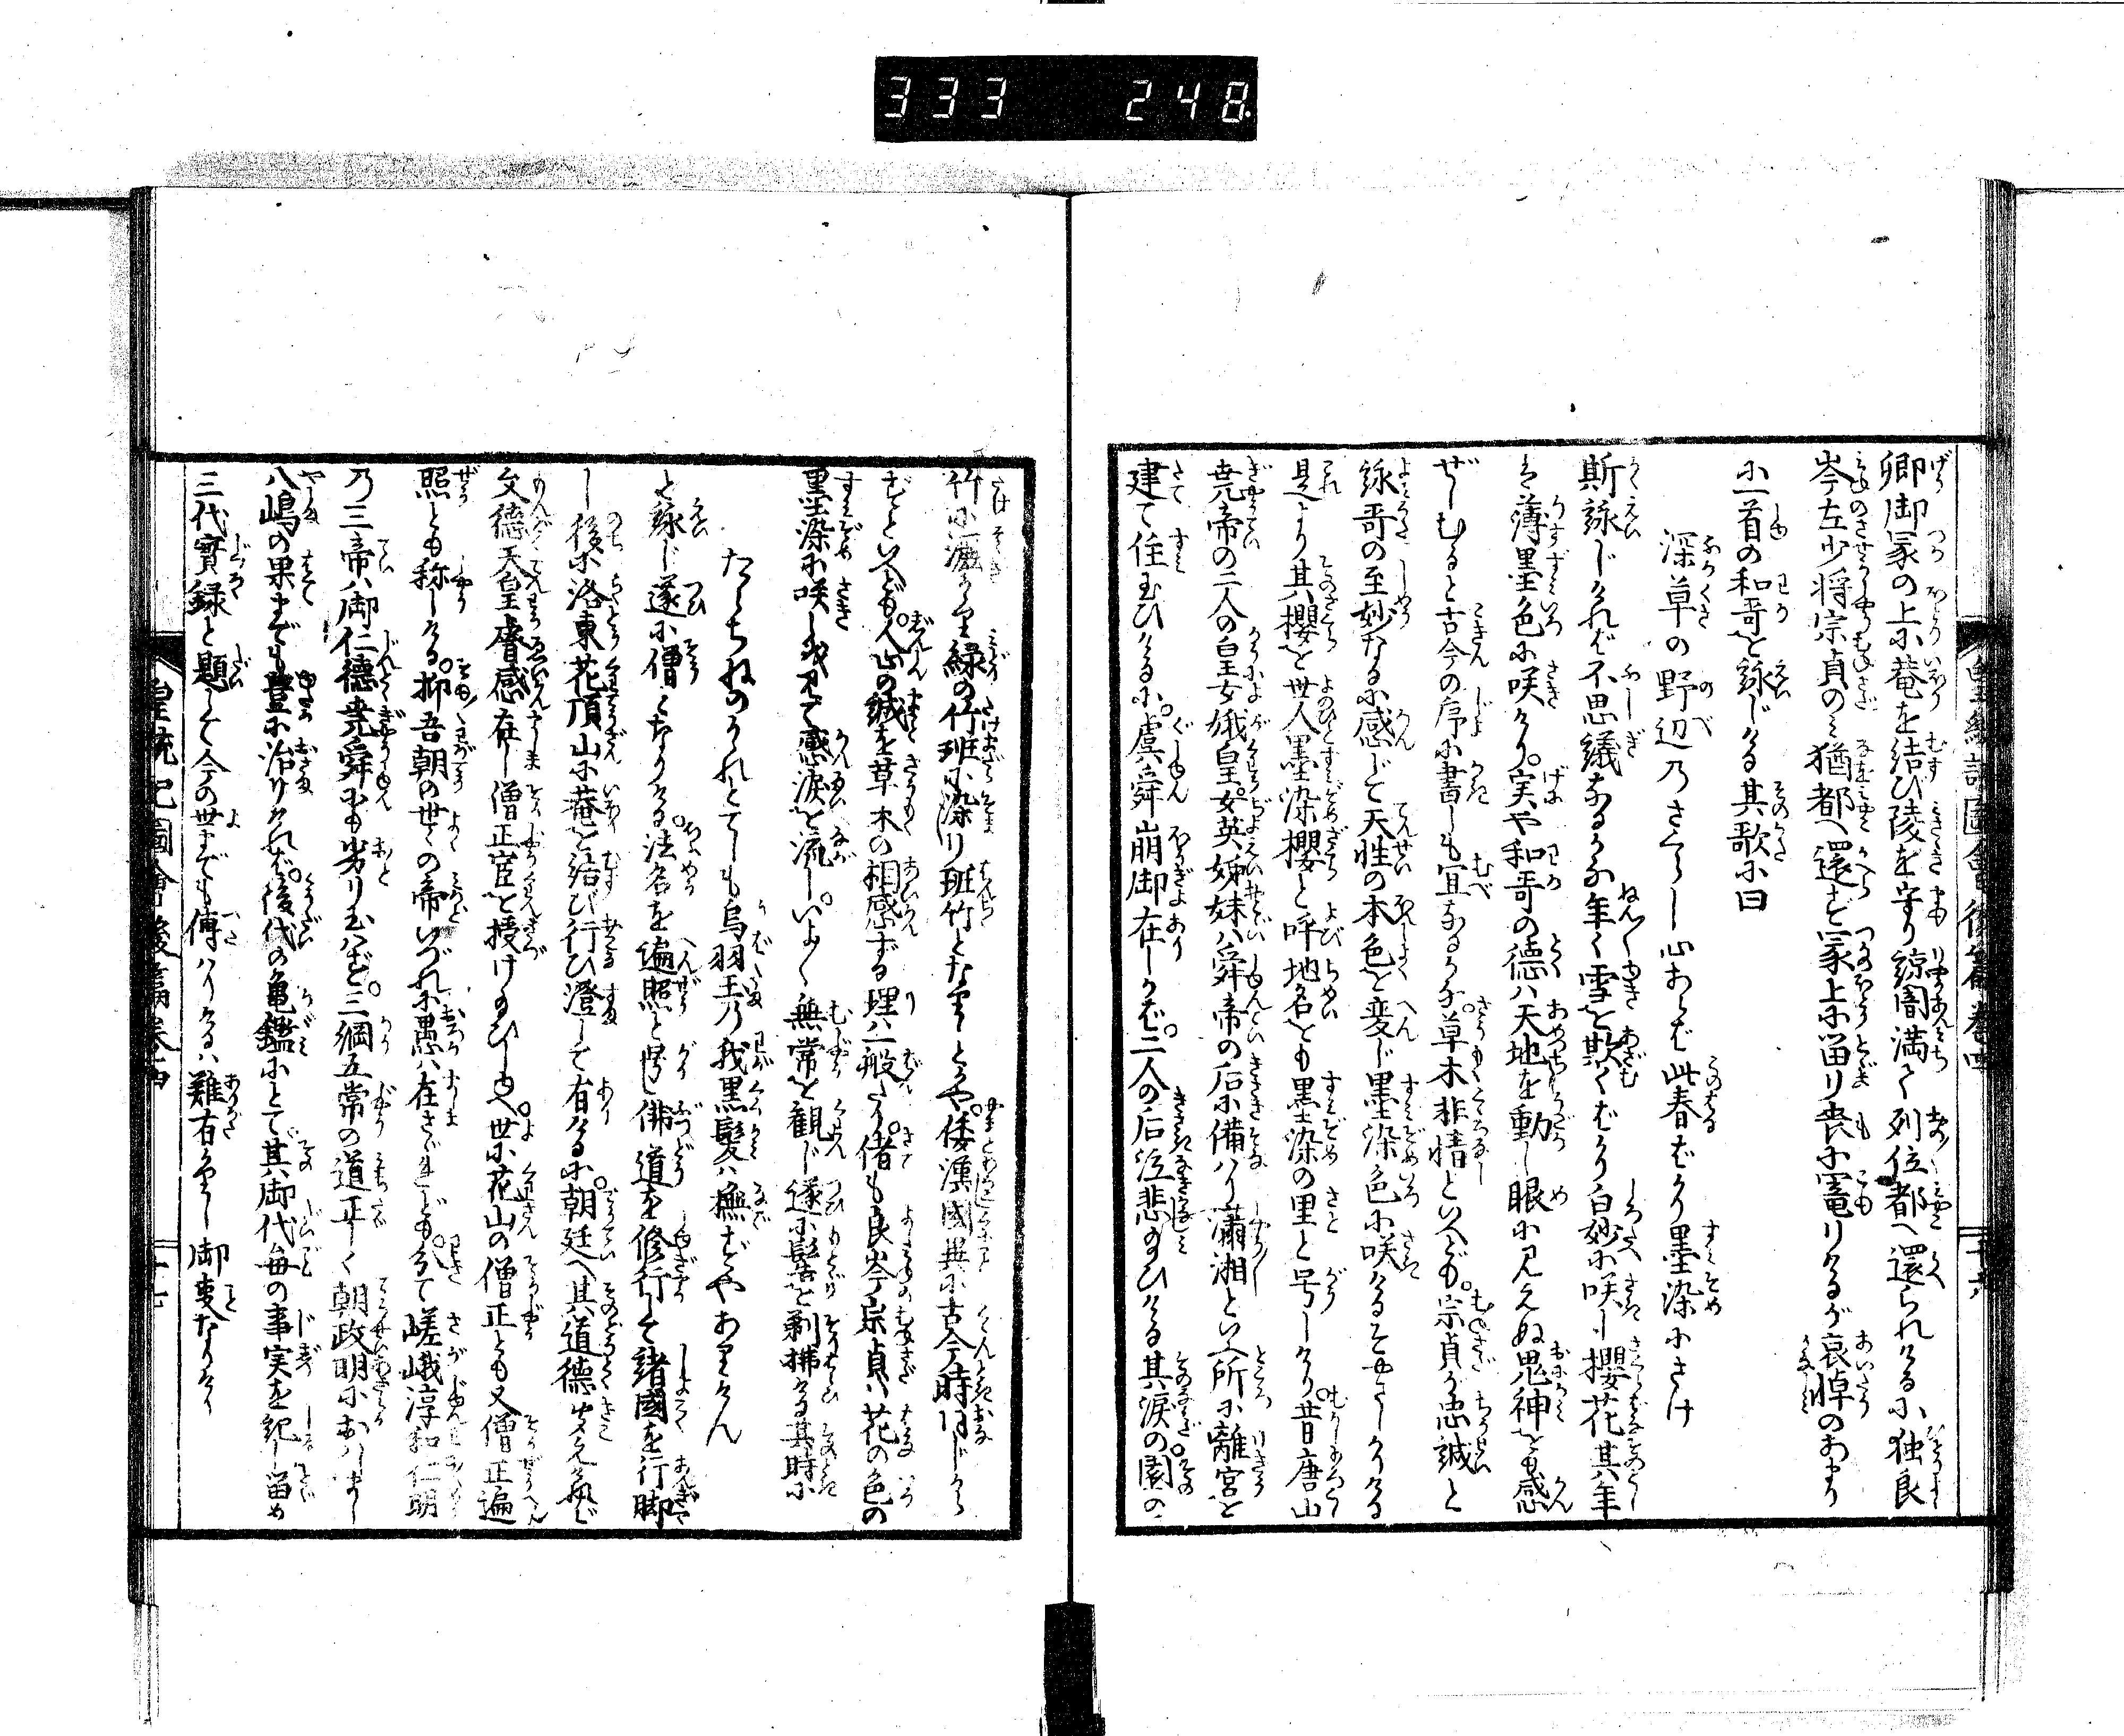 333 248
卿御冢の上に菴を結び陵を守り諒闇満て列位都へ還られけるに独良
岑左少将宗貞のミ猶都へ還らず冢上に留り喪に篭りけるが哀悼のあまり
に一首の和哥を詠じける其歌に曰
深草の野辺乃さくらし心あらば此春ばかり墨染にさけ
斯詠じければ不思議なるかな年々雪を欺くばかり白妙に咲し櫻花其年
は薄墨色に咲けり。実や和哥の徳ハ天地を動し眼に見えぬ鬼神をも感
ぜしむると古今の序に書しも宜なるかな。草木非情といへども。宗貞が忠誠と
詠哥の至妙なるに感じて天性の本色を変じ墨染色に咲けるぞやさしかりける
是より其櫻を世人墨染櫻と呼地名をも墨染の里と号しけり。昔唐山
堯帝の二人の皇女娥皇。女英姉妹ハ舜帝の后に備ハり瀟湘といふ所に離宮を
建て住玉ひけるに。虞舜崩御在しかば。二人の后泣悲み玉ひける其涙の園の
竹に灑ぎ緑の竹班に染り班竹となりしとかや。倭漢國異に古今時同じから
ずといへども。人心の誠を草木の相感ずる理ハ一般なり。偖も良岑宗貞ハ花の色の
墨染に咲しを見て感涙を流し。いよ〳〵無常を観じ遂に髻を剃拂ける其時に
たらちねのかれとてしも烏羽玉乃我黒髪ハ撫ずやありけん
と詠じ遂に僧となりける。法名を遍照と号し佛道を修行して諸國を行脚
し後に洛東花頂山に菴を結び行ひ澄して有けるに。朝廷へ其道徳聞えければ
文徳天皇睿感在し僧正官を授け玉ひしゆへ。世に花山の僧正とも又僧正遍
照とも称しける。抑吾朝の世々の帝いづれに愚ハ在さゞれども。分て嵯峨淳和仁明
乃三帝ハ御仁徳堯舜にも劣り玉ハず。三綱五常の道正しく朝政明におハしまし
八嶋の果までも豊に治りければ。後代の亀鑑にとて其御代毎の事実を紀し留め
三代實録と題して今の世までも傳ハりけるハ難有かりし御事なりけり
皇統記圖會後篇巻四